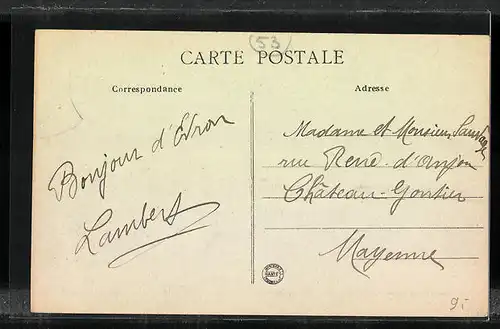 (53)
CARTE POSTALE
Correspondance
Adresse
Bonjour d'Evron
Lambert
Madame et Monsieur Sauvage
rue René d'Anjou
Château-Gontier
Mayenne
9.-